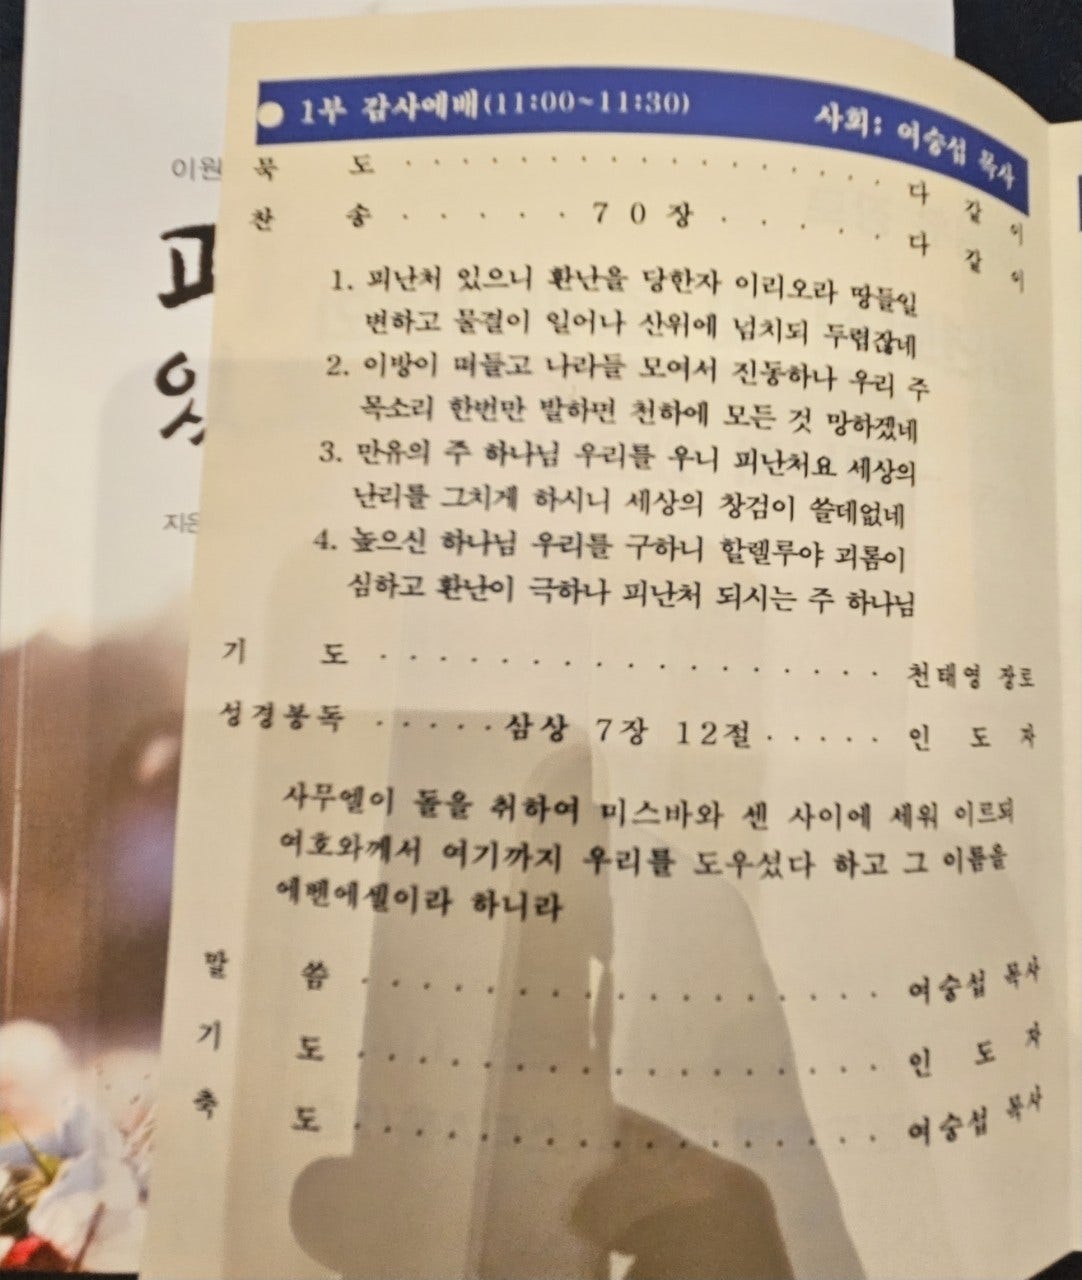 1부 감사예배(11:00~11:30) 사회: 여승섭 목사
묵 도 다 같 이
찬 송 70장 다 같 이
1. 피난처 있으니 환난을 당한자 이리오라 땅들일
변하고 물결이 일어나 산위에 넘치되 두렵잖네
2. 이방이 떠들고 나라들 모여서 진동하나 우리 주
목소리 한번만 발하면 천하에 모든 것 망하겠네
3. 만유의 주 하나님 우리를 우니 피난처요 세상의
난리를 그치게 하시니 세상의 창검이 쓸데없네
4. 높으신 하나님 우리를 구하니 할렐루야 괴롬이
심하고 환난이 극하나 피난처 되시는 주 하나님
기 도 천태영 장로
성경봉독 삼상 7장 12절 인 도 자
사무엘이 돌을 취하여 미스바와 센 사이에 세워 이르되
여호와께서 여기까지 우리를 도우셨다 하고 그 이름을
에벤에셀이라 하니라
말 씀 여승섭 목사
기 도 인 도 자
축 도 여승섭 목사
이원